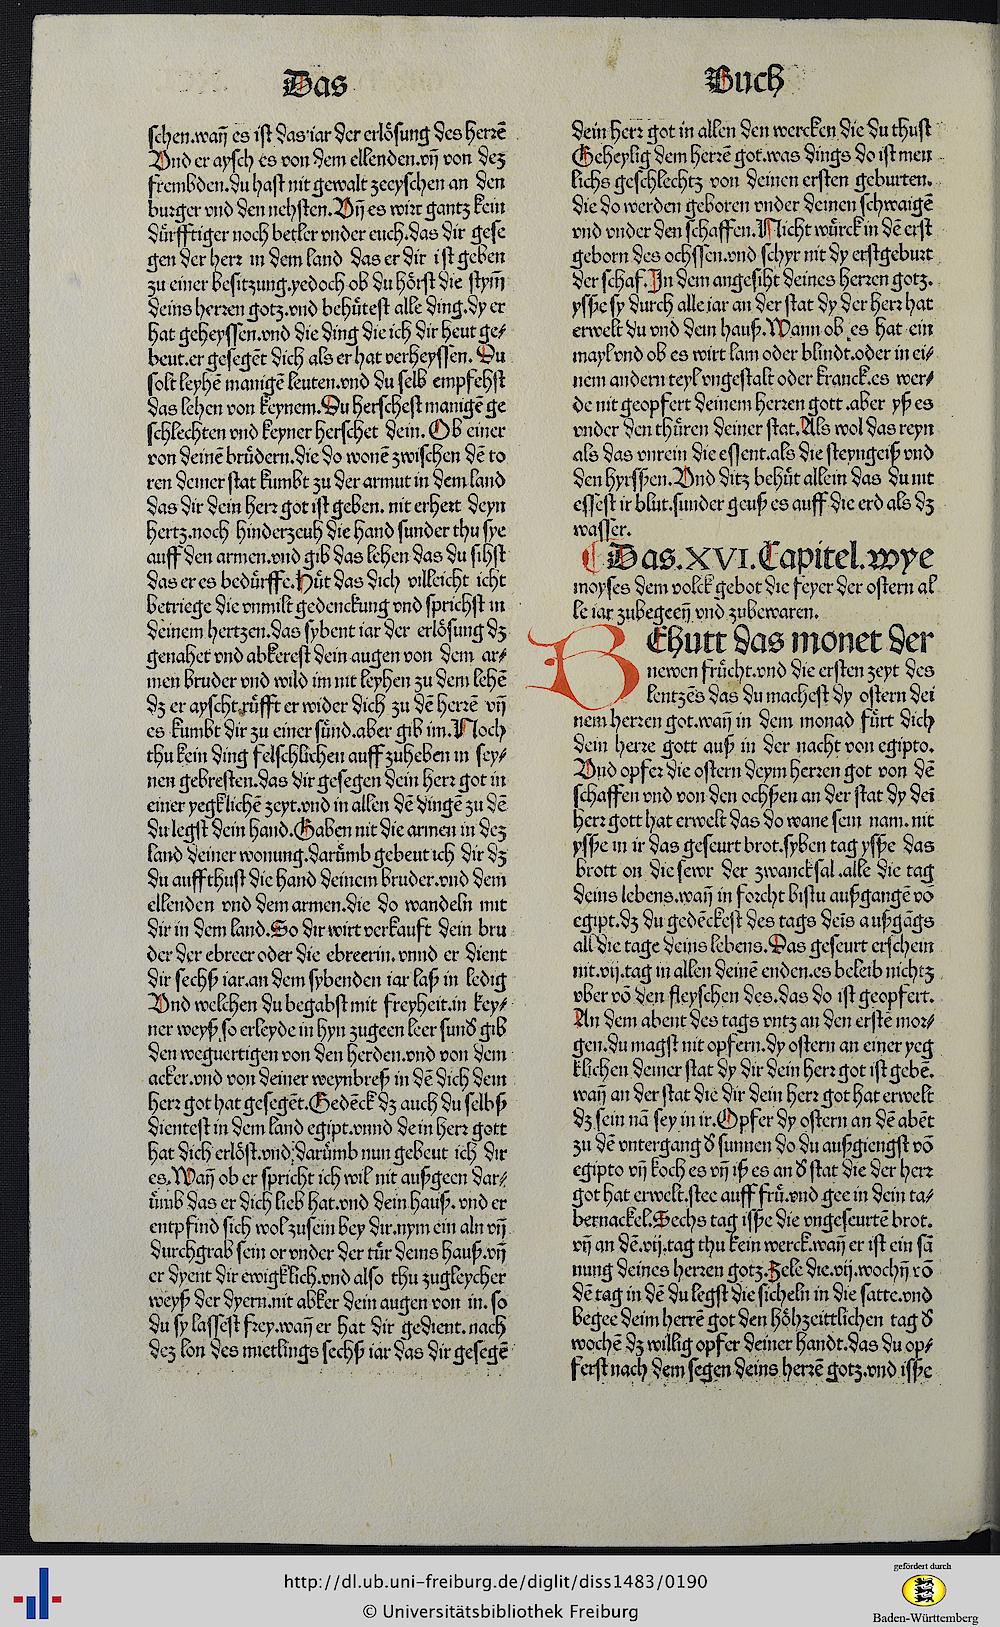 Das
Buch
schen.wañ es ist das iar der erlösung des herrē
Vnd er aysch es von dem ellenden.vñ von dez
frembden.du hast nit gewalt zeeyschen an den
burger vnd den nehsten. Vñ es wirt gantz kein
dürfftiger noch betler vnder euch.das dir gese
gen der herr in dem land das er dir ist geben
zu einer besitzung.yedoch ob du hörst die stym̄
deins herzen gotz.vnd behütest alle ding.dy er
hat geheyssen.vnd die ding die ich dir heut ge⸗
beut.er gesegēt dich als er hat verheyssen. Du
solt leyhē manigē leuten.vnd du selb empfehst
das lehen von keynem.Du herschest manigē ge
schlechten vnd keyner herschet dein. Ob einer
von deinē brüdern.die do wonē zwischen dē to
ren deiner stat kumbt zu der armut in dem land
das dir dein herr got ist geben. nit erhert deyn
hertz.noch hinderzeuh die hand sunder thu sye
auff den armen.vnd gib das lehen das du sihst
das er es bedürffe.Hüt das dich villeicht icht
betriege die vnmilt gedenckung vnd sprichst in
deinem hertzen.das sybent iar der erlösung dz
genahet vnd abkerest dein augen von dem ar⸗
men bruder vnd wild im nit leyhen zu dem lehē
dz er ayscht.rüfft er wider dich zu dē herrē vñ
es kumbt dir zu einer sünd.aber gib im.Noch
thu kein ding felschlichen auff zuheben in sey⸗
nen gebresten.das dir gesegen dein herr got in
einer yegklichē zeyt.vnd in allen dē dingē zu dē
du legst dein hand.Haben nit die armen in dez
land deiner wonung.darümb gebeut ich dir dz
du auff thust die hand deinem bruder.vnd dem
ellenden vnd dem armen.die do wandeln mit
dir in dem land.So dir wirt verkauft dein bru
der der ebreer oder die ebreerin. vnnd er dient
dir sechß iar.an dem sybenden iar laß in ledig
Vnd welchen du begabst mit freyheit.in key⸗
ner weyß so erleyde in hyn zugeen leer sund̛ gib
den weguertigen von den herden.vnd von dem
acker.vnd von deiner weynbreß in dē dich dein
herr got hat gesegēt.Gedēck dz auch du selbß
dientest in dem land egipt.vnnd dein herr gott
hat dich erlöst.vnd darümb nun gebeut ich dir
es.Wañ ob er spricht ich wil nit außgeen dar⸗
ümb das er dich lieb hat.vnd dein hauß. vnd er
entpfind sich wol zusein bey dir.nym ein aln vñ
durchgrab sein or vnder der tür deins hauß.vñ
er dyent dir ewigklich.vnd also thu zugleycher
weyß der dyern.nit abker dein augen von in. so
du sy lassest frey.wañ er hat dir gedient. nach
dez lon des mietlings sechß iar das dir gesegē
dein herr got in allen den wercken die du thust
Geheylig dem herrē got.was dings do ist men
lichs geschlechtz von deinen ersten geburten.
die do werden geboren vnder deinen schwaigē
vnd vnder den schaffen.Nicht würck in dē erst
geborn des ochssen.vnd schyr nit dy erstgeburt
der schaf.In dem angesiht deines herzen gotz.
ysse sy durch alle iar an der stat dy der herr hat
erwelt du vnd dein hauß.Wann ob es hat ein
mayl vnd ob es wirt lam oder blindt.oder in ei⸗
nem andern teyl vngestalt oder kranck.es wer⸗
de nit geopfert deinem herzen gott.aber yß es
vnder den thüren deiner stat.Als wol das reyn
als das vnrein die essent.als die steyngeiß vnd
den hyrssen.Vnd ditz behüt allein das du nit
essest ir blut.sunder geuß es auff die erd als dz
wasser.
Das.XVI.Capitel.wye
moyses dem volck gebot die feyer der ostern al
le iar zubegeeñ vnd zubewaren.
BEhutt das monet der
newen frücht.vnd die ersten zeyt des
lentzēs das du machest dy ostern dei
nem herzen got.wañ in dem monad fürt dich
dein herre gott auß in der nacht von egipto.
Vnd opfer die ostern deym herzen got von dē
schaffen vnd von den ochßen an der stat dy dei
herr gott hat erwelt das do wane sein nam. nit
ysse in ir das geseurt brot.syben tag ysse das
brott on die sewr der zwancksal.alle die tag
deins lebens.wañ in forcht bistu außgangē vō
egipt.dz du gedēckest des tags deīs außgāgs
all die tage deins lebens.Das geseurt erschein
nit.vij.tag in allen deinē enden.es beleib nichtz
vber vō den fleyschen des.das do ist geopfert.
An dem abent des tags vntz an den erstē mor⸗
gen.du magst nit opfern.dy ostern an einer yeg
klichen deiner stat dy dir dein herr got ist gebē.
wañ an der stat die dir dein herr got hat erwelt
dz sein nā sey in ir.Opfer dy ostern an dē abēt
zu dē vntergang d̛ sunnen do du außgiengst vō
egipto vñ koch es vñ iß es an d̛ stat die der herr
got hat erwelt.stee auff frü.vnd gee in dein ta⸗
bernackel.Sechs tag isse die vngeseurtē brot.
vñ an dē.vij.tag thu kein werck.wañ er ist ein sā
nung deines herzen gotz.Zele die.vij.wochñ vō
dē tag in dē du legst die sicheln in die satte.vnd
begee deim herrē got den höhzeittlichen tag d̛
wochē dz willig opfer deiner handt.das du op⸗
ferst nach dem segen deins herzē gotz.vnd isse
http://dl.ub.uni-freiburg.de/diglit/diss1483/0190
© Universitätsbibliothek Freiburg
gefördert durch
Baden-Württemberg